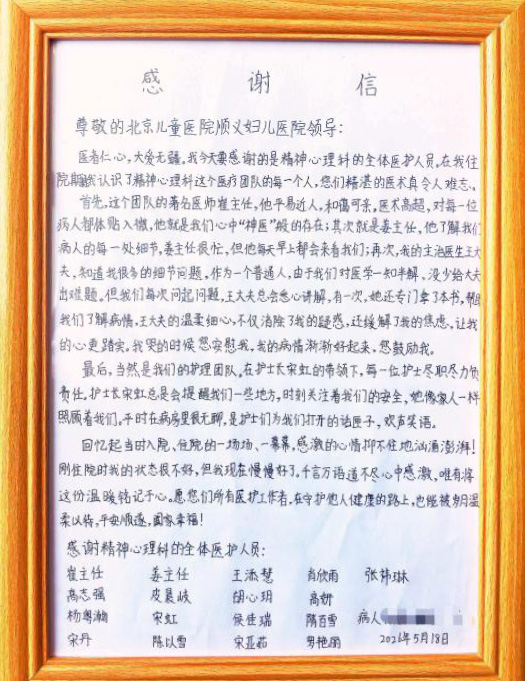 感谢信
尊敬的北京儿童医院顺义妇儿医院领导：
医者仁心，大爱无疆。我今天要感谢的是精神心理科的全体医护人员，在我住
院期间我认识了精神心理科这个医疗团队的每一个人，您们精湛的医术真令人难忘。
首先，这个团队的著名医师崔主任，他平易近人，和蔼可亲，医术高超，对每一位
病人都体贴入微，他就是我们心中“神医”般的存在；其次就是姜主任，他了解我们
病人的每一处细节，姜主任很忙，但他每天早上都会来看我们；再次，我的主治医生王大
夫，知道我很多的细节问题，作为一个普通人，由于我们对医学一知半解，没少给大夫
出难题。但我们每次问起问题，王大夫总会悉心讲解，有一次，她还专门拿了本书，帮助
我们了解病情，王大夫的温柔细心，不仅消除了我的疑惑，还缓解了我的焦虑，让我
的心更踏实。我哭的时候您安慰我，我的病情渐渐好起来，您鼓励我。
最后，当然是我们的护理团队，在护士长宋虹的带领下，每一位护士尽职尽力负
责任。护士长宋虹总是会提醒我们一些地方，时刻关注着我们的安全，她像家人一样
照顾着我们，平时在病房里很无聊，是护士们为我们打开的话匣子，欢声笑语。
回忆起当时入院、住院的一场场、一幕幕，感激的心情抑不住地汹涌澎湃！
刚住院时我的状态很不好，但我现在慢慢好了。千言万语道不尽心中感激，唯有将
这份温暖铭记于心。愿您们所有医护工作者，在守护他人健康的路上，也能被岁月温
柔以待，平安顺遂，阖家幸福！
感谢精神心理科的全体医护人员：
崔主任 姜主任 王添慧 肖欣雨 张祎琳
高志强 皮晨岐 胡心玥 高妍
杨粤瀚 宋虹 侯佳瑞 隋百雪 病人
宋丹 陈以雪 宋亚茹 2026年5月18日